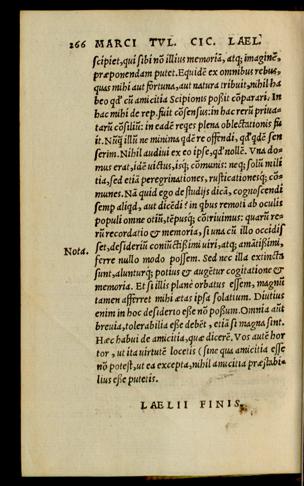 266 MARCI TVL. CIC. LAEL.
scipiet, qui sibi nõ illius memoriã, atq; imaginẽ,
præponendam putet. Equidẽ ex omnibus rebus,
quas mihi aut fortuna, aut natura tribuit, nihil ha
beo qđ cũ amicitia Scipionis poßit cõparari. In
hac mihi de rep. fuit cõsensus: in hac rerũ priua-
tarũ cõsiliũ: in eadẽ reqes plena oblectationis fu
it. Nũq̃ illũ ne minima qdẽ re offendi, qđ qdẽ sen
serim. Nihil audiui ex eo ipse, qđ nollẽ. Vna do-
mus erat, idẽ uictus, isq; cõmunis: neq; solũ mili
tia, sed etiã peregrinationes, rusticationesq; cõ-
munes. Nã quid ego de studijs dicã, cognoscendi
semp aliqd, aut dicẽdi? in qbus remoti ab oculis
populi omne otiũ, tẽpusq; cõtriuimus: quarũ re-
rũ recordatio & memoria, si una cũ illo occidis
set, desideriũ coniũctißimi uiri, atq; amãtißimi,
Nota. ferre nullo modo possem. Sed nec illa extincta
sunt, alunturq; potius & augẽtur cogitatione &
memoria. Et si illis planè orbatus essem, magnũ
tamen afferret mihi ætas ipsa solatium. Diutius
enim in hoc desiderio eße nõ poßum. Omnia aũt
breuia, tolerabilia eße debẽt, etiã si magna sint.
Hæc habui de amicitia, quæ dicerẽ. Vos autẽ hor
tor, ut ita uirtutẽ locetis (sine qua amicitia esse
nõ potest, ut ea excepta, nihil amicitia præstabi-
lius eße putetis.
LAELII FINIS.